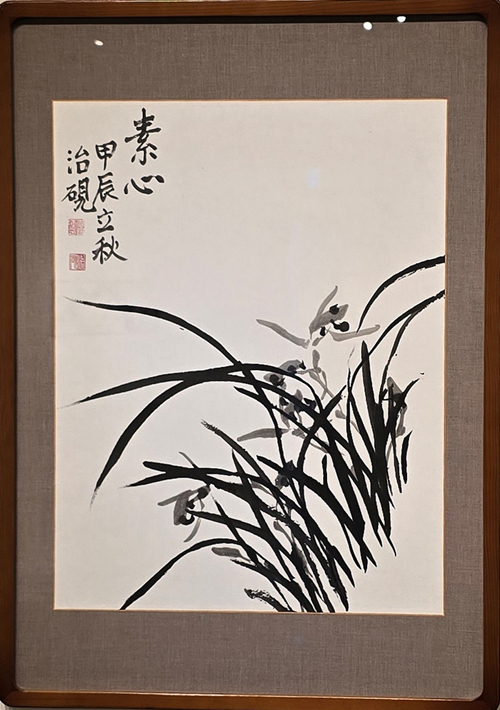 素心
甲辰立秋
治硯